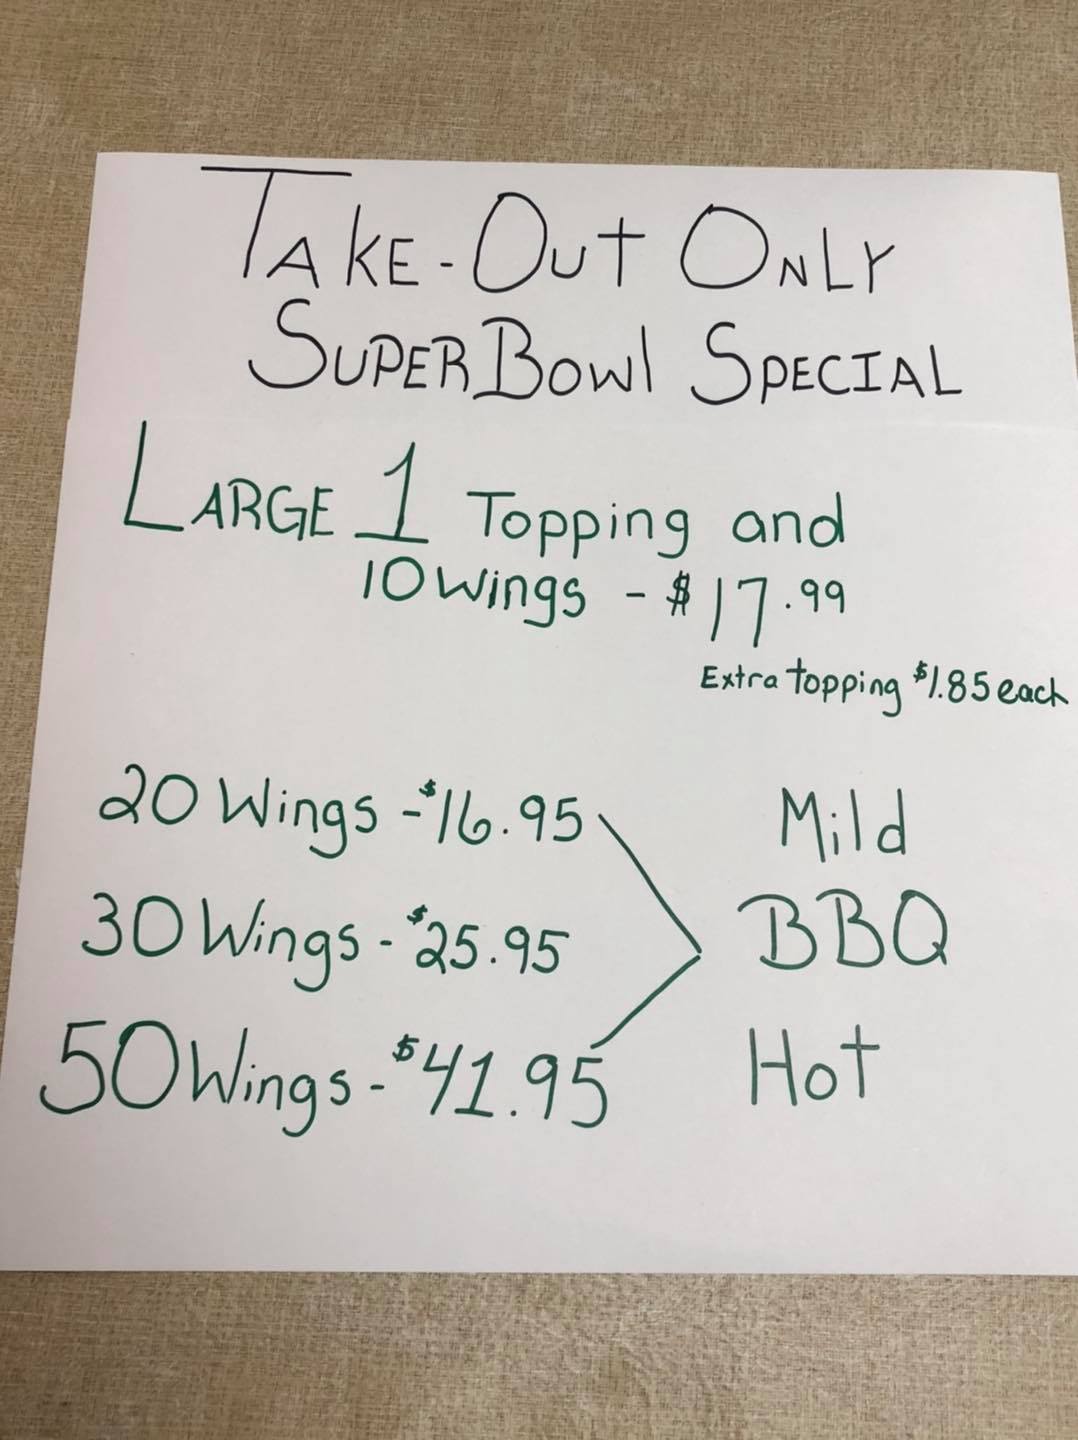 TAKE-OUT ONLY
SUPERBOWl SPECIAL
LARGE 1 Topping and
10 wings - $17.99
Extra topping $1.85 each
20 Wings - $16.95 Mild
30 Wings - $25.95 BBQ
50 Wings - $41.95 Hot